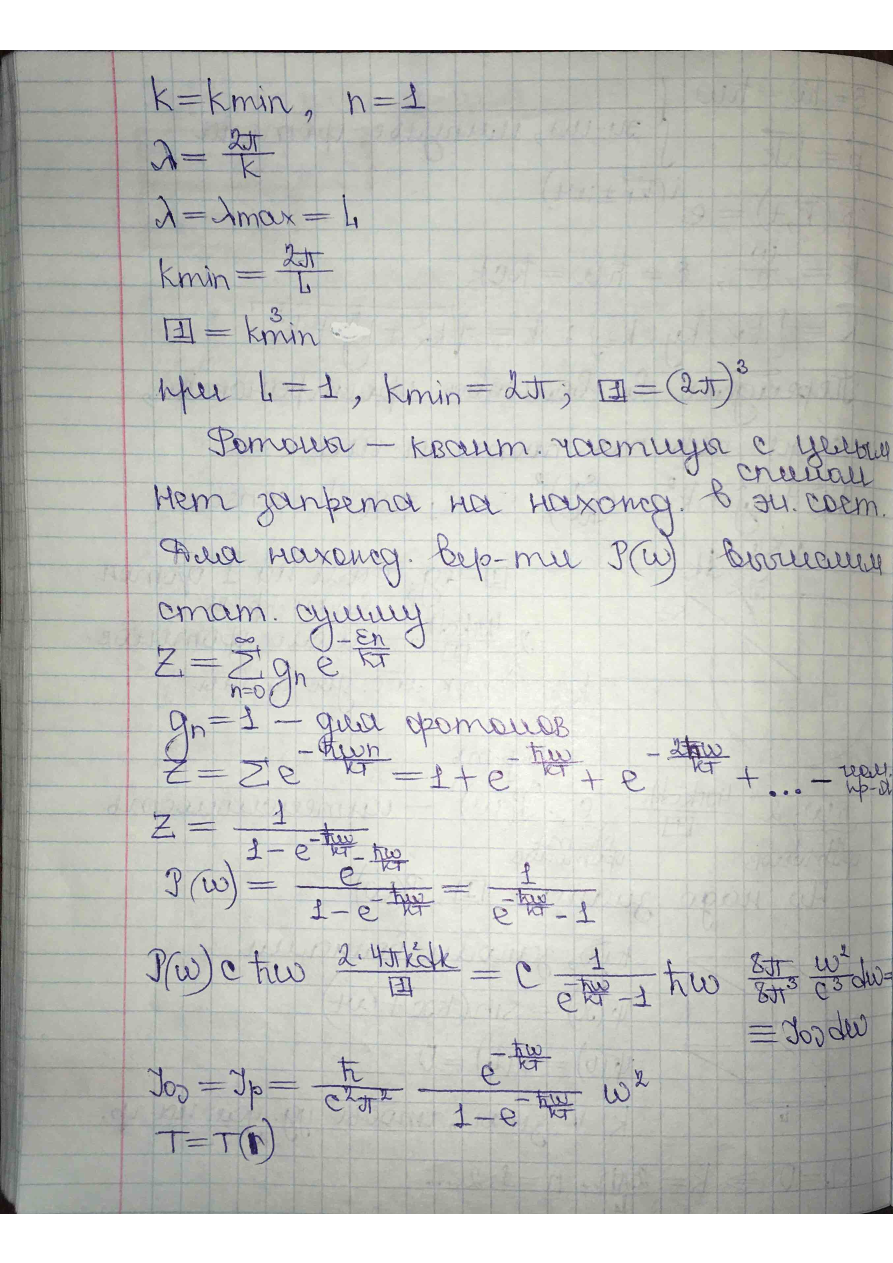 k = kmin, n = 1
λ = 2π/k
λ = λmax = L
kmin = 2π/L
[1] = k³min
при L = 1, kmin = 2π; [1] = (2π)³
Фотоны — квант. частицы с целым
спином
Нет запрета на нахожд. в эн. сост.
Для нахожд. вер-ти P(ω) вычислим
стат. сумму
Z = Σ_{n=0}^{∞} gₙ e^{-εn/kT}
gₙ = 1 – для фотонов
Z = Σ e^{-ħωn/kT} = 1 + e^{-ħω/kT} + e^{-2ħω/kT} + ... – геом. пр-я
Z = 1/(1 - e^{-ħω/kT})
P(ω) = e^{-ħω/kT}/(1 - e^{-ħω/kT}) = 1/(e^{-ħω/kT} - 1)
P(ω) c ħω 2·4πk²dk/[1] = c 1/(e^{-ħω/kT} - 1) ħω 8π/8π³ ω²/c³ dω =
≡ Jωdω
Jω = Jp = ħ/(c²π²) e^{-ħω/kT}/(1 - e^{-ħω/kT}) ω²
T = T(r)